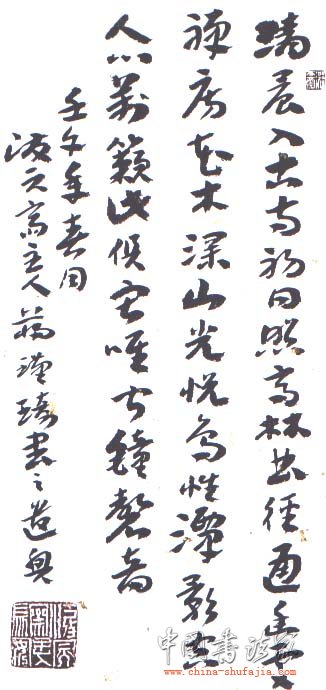 清晨入古寺初日照高林曲径通幽處
禅房花木深山光悦鸟性潭影空
人心萬籟此俱寂唯闻鐘磬音
壬午年春月
主人蒋瑾琦書之遣興
中国书法家
www.china-shufajia.com